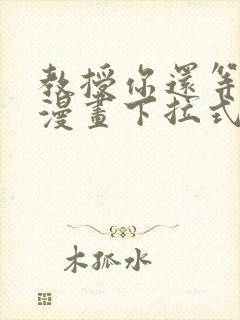 教授你還等
漫畫下拉式
木孤水